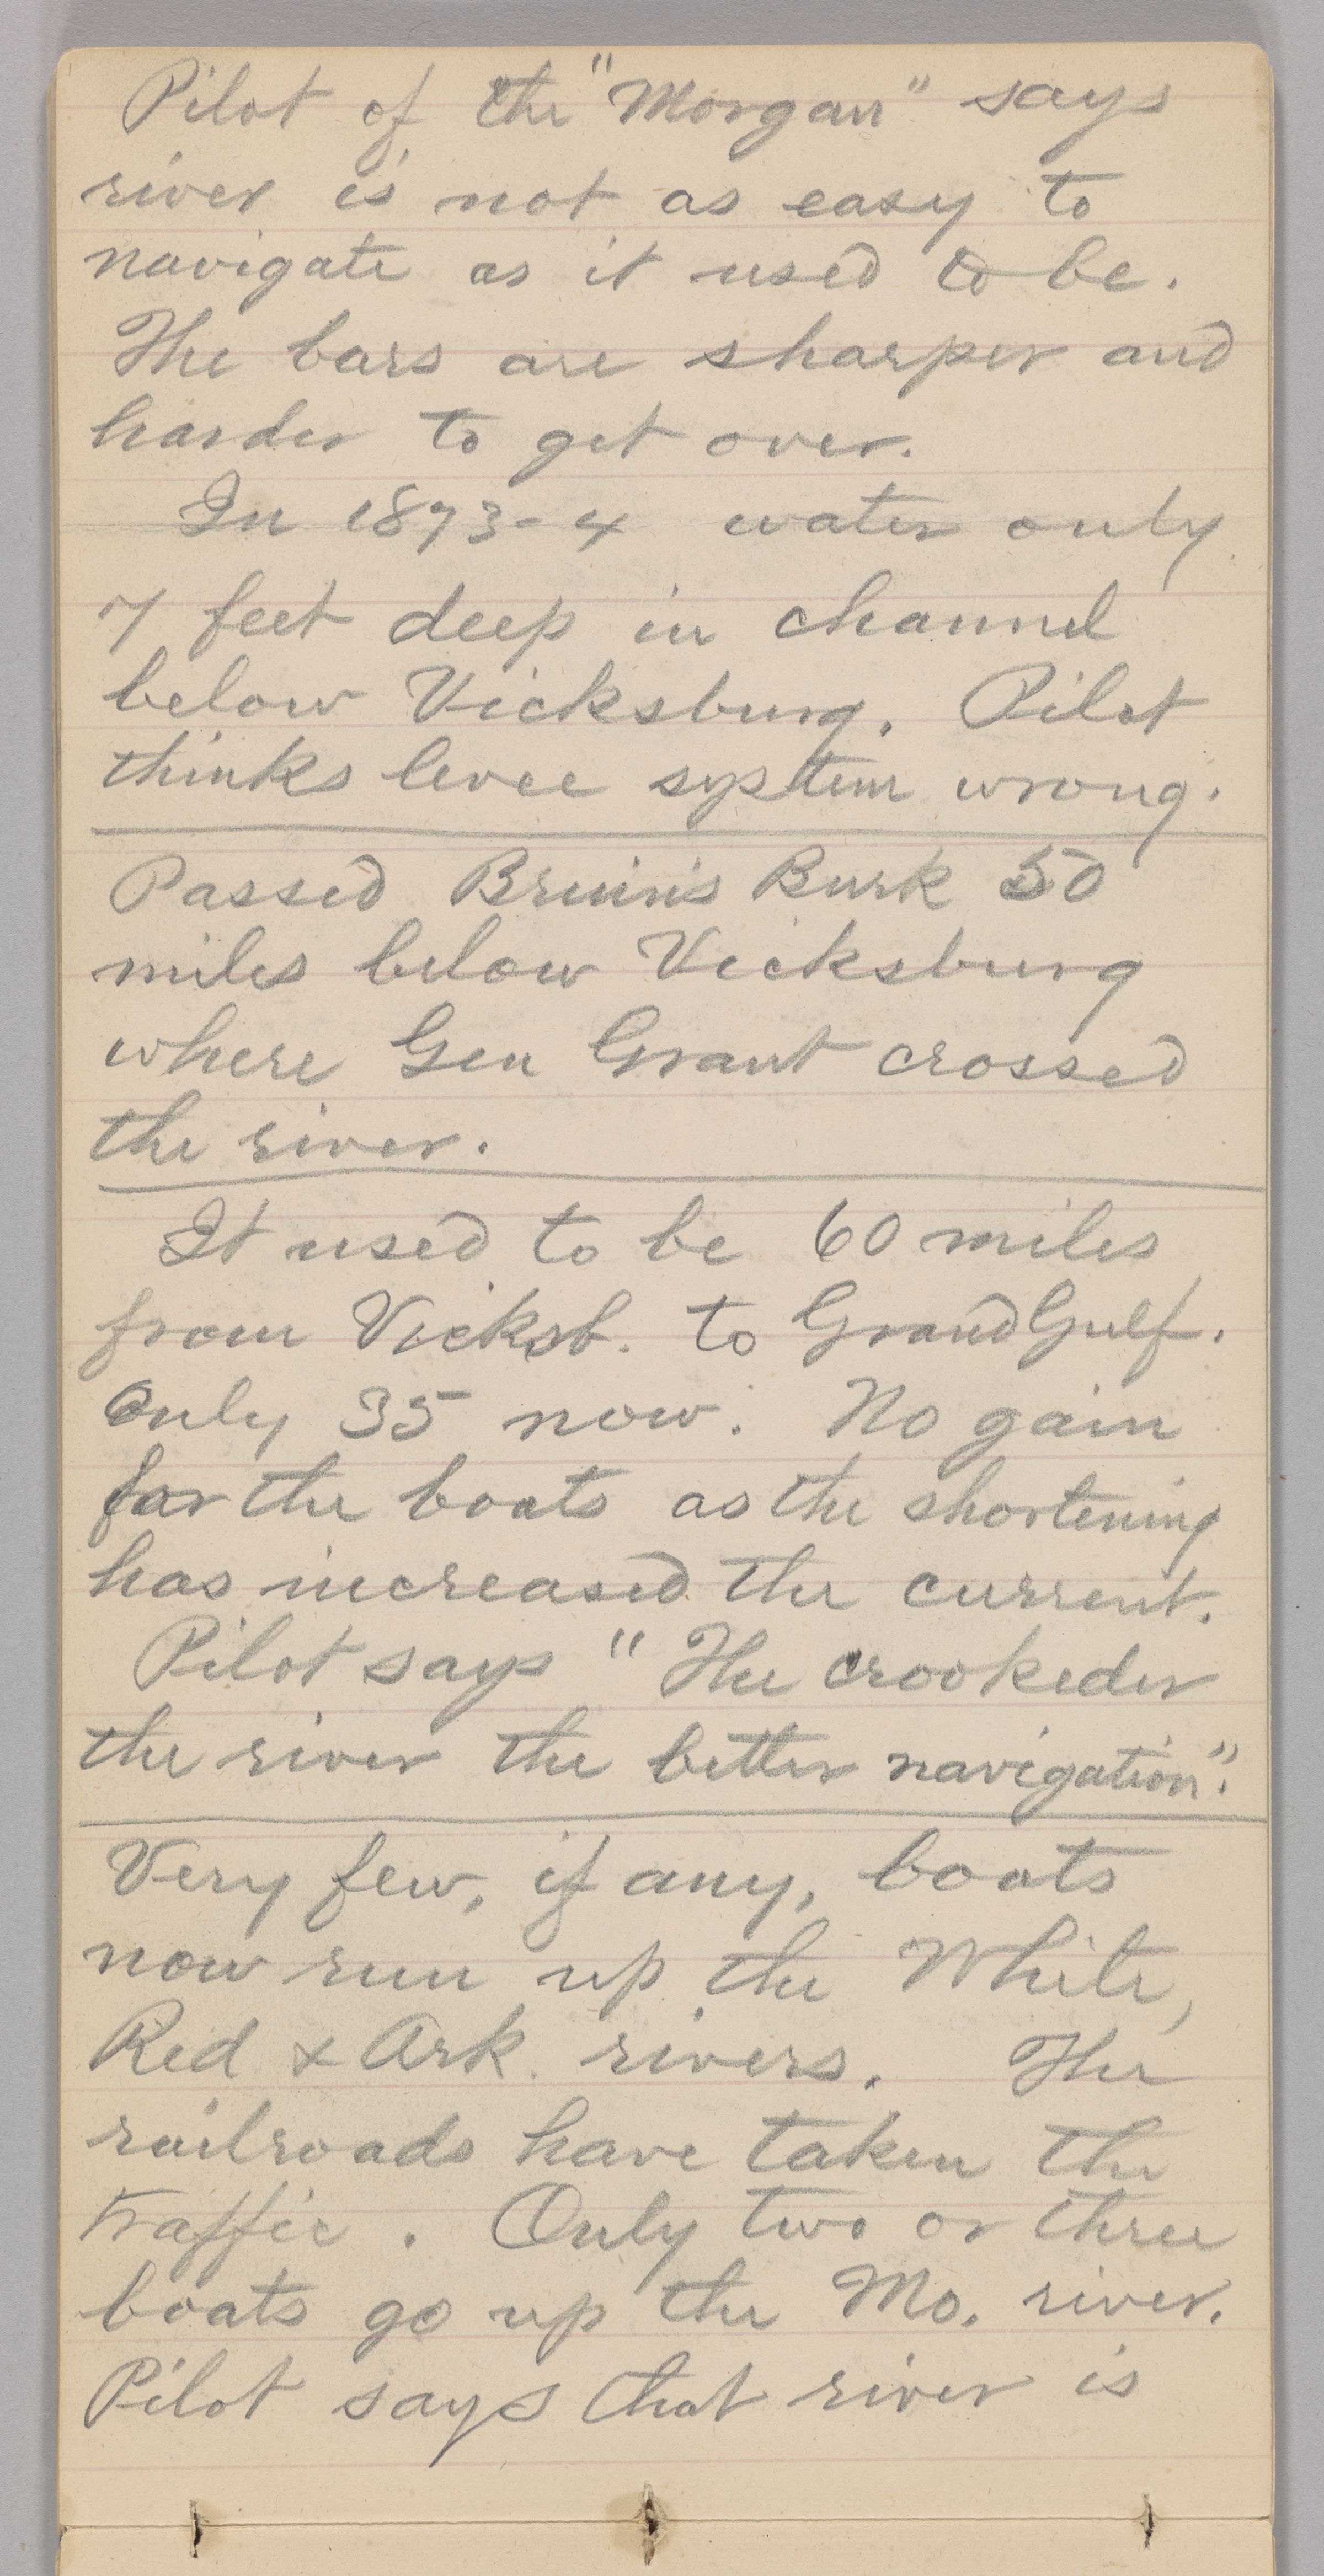 Pilot of the "Morgan" says
river is not as easy to
navigate as it used to be.
The bars are sharper and
harder to get over.
In 1873-4 water only
7 feet deep in channel
below Vicksburg. Pilot
thinks levee system wrong.
Passed Bruins Burk 50
miles below Vicksburg
where Gen Grant crossed
the river.
It used to be 60 miles
from Vicksb. to Grand Gulf.
Only 35 now. No gain
for the boats as the shortening
has increased the current.
Pilot says "The crookeder
the river the better navigation".
Very few, if any, boats
now run up the White,
Red & Ark. rivers. The
railroads have taken the
traffic. Only two or three
boats go up the Mo. river.
Pilot says that river is